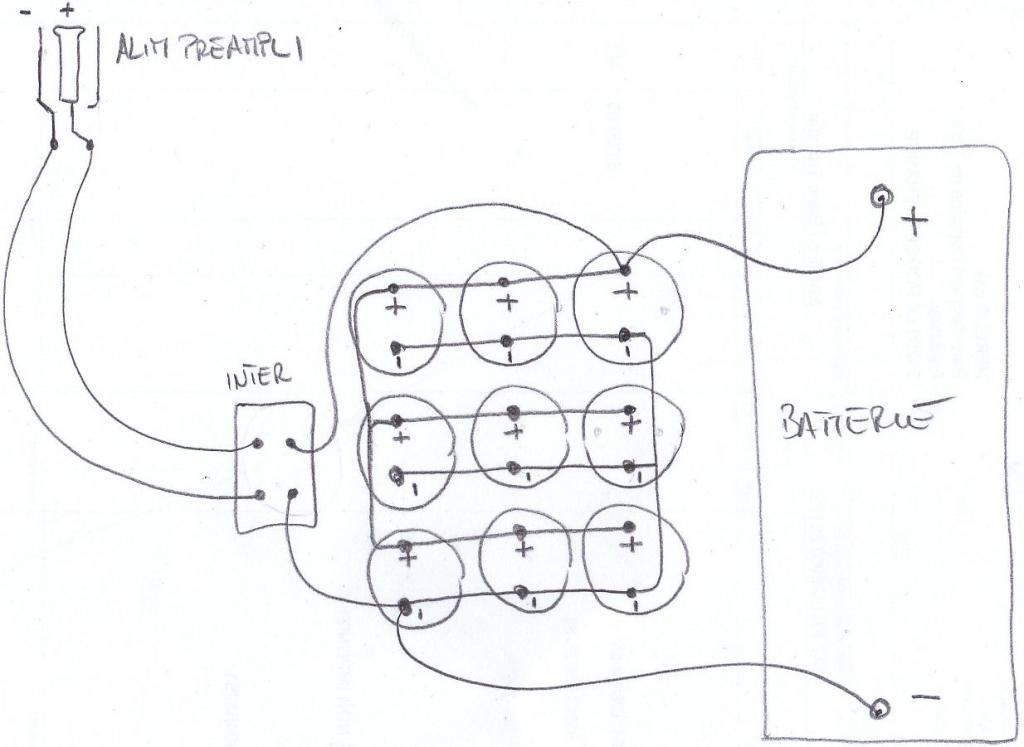 - +
ALIM PREAMPLI
+ + +
- - -
+
INTER
BATTERIE
+ + +
- - -
+ + +
- - -
-